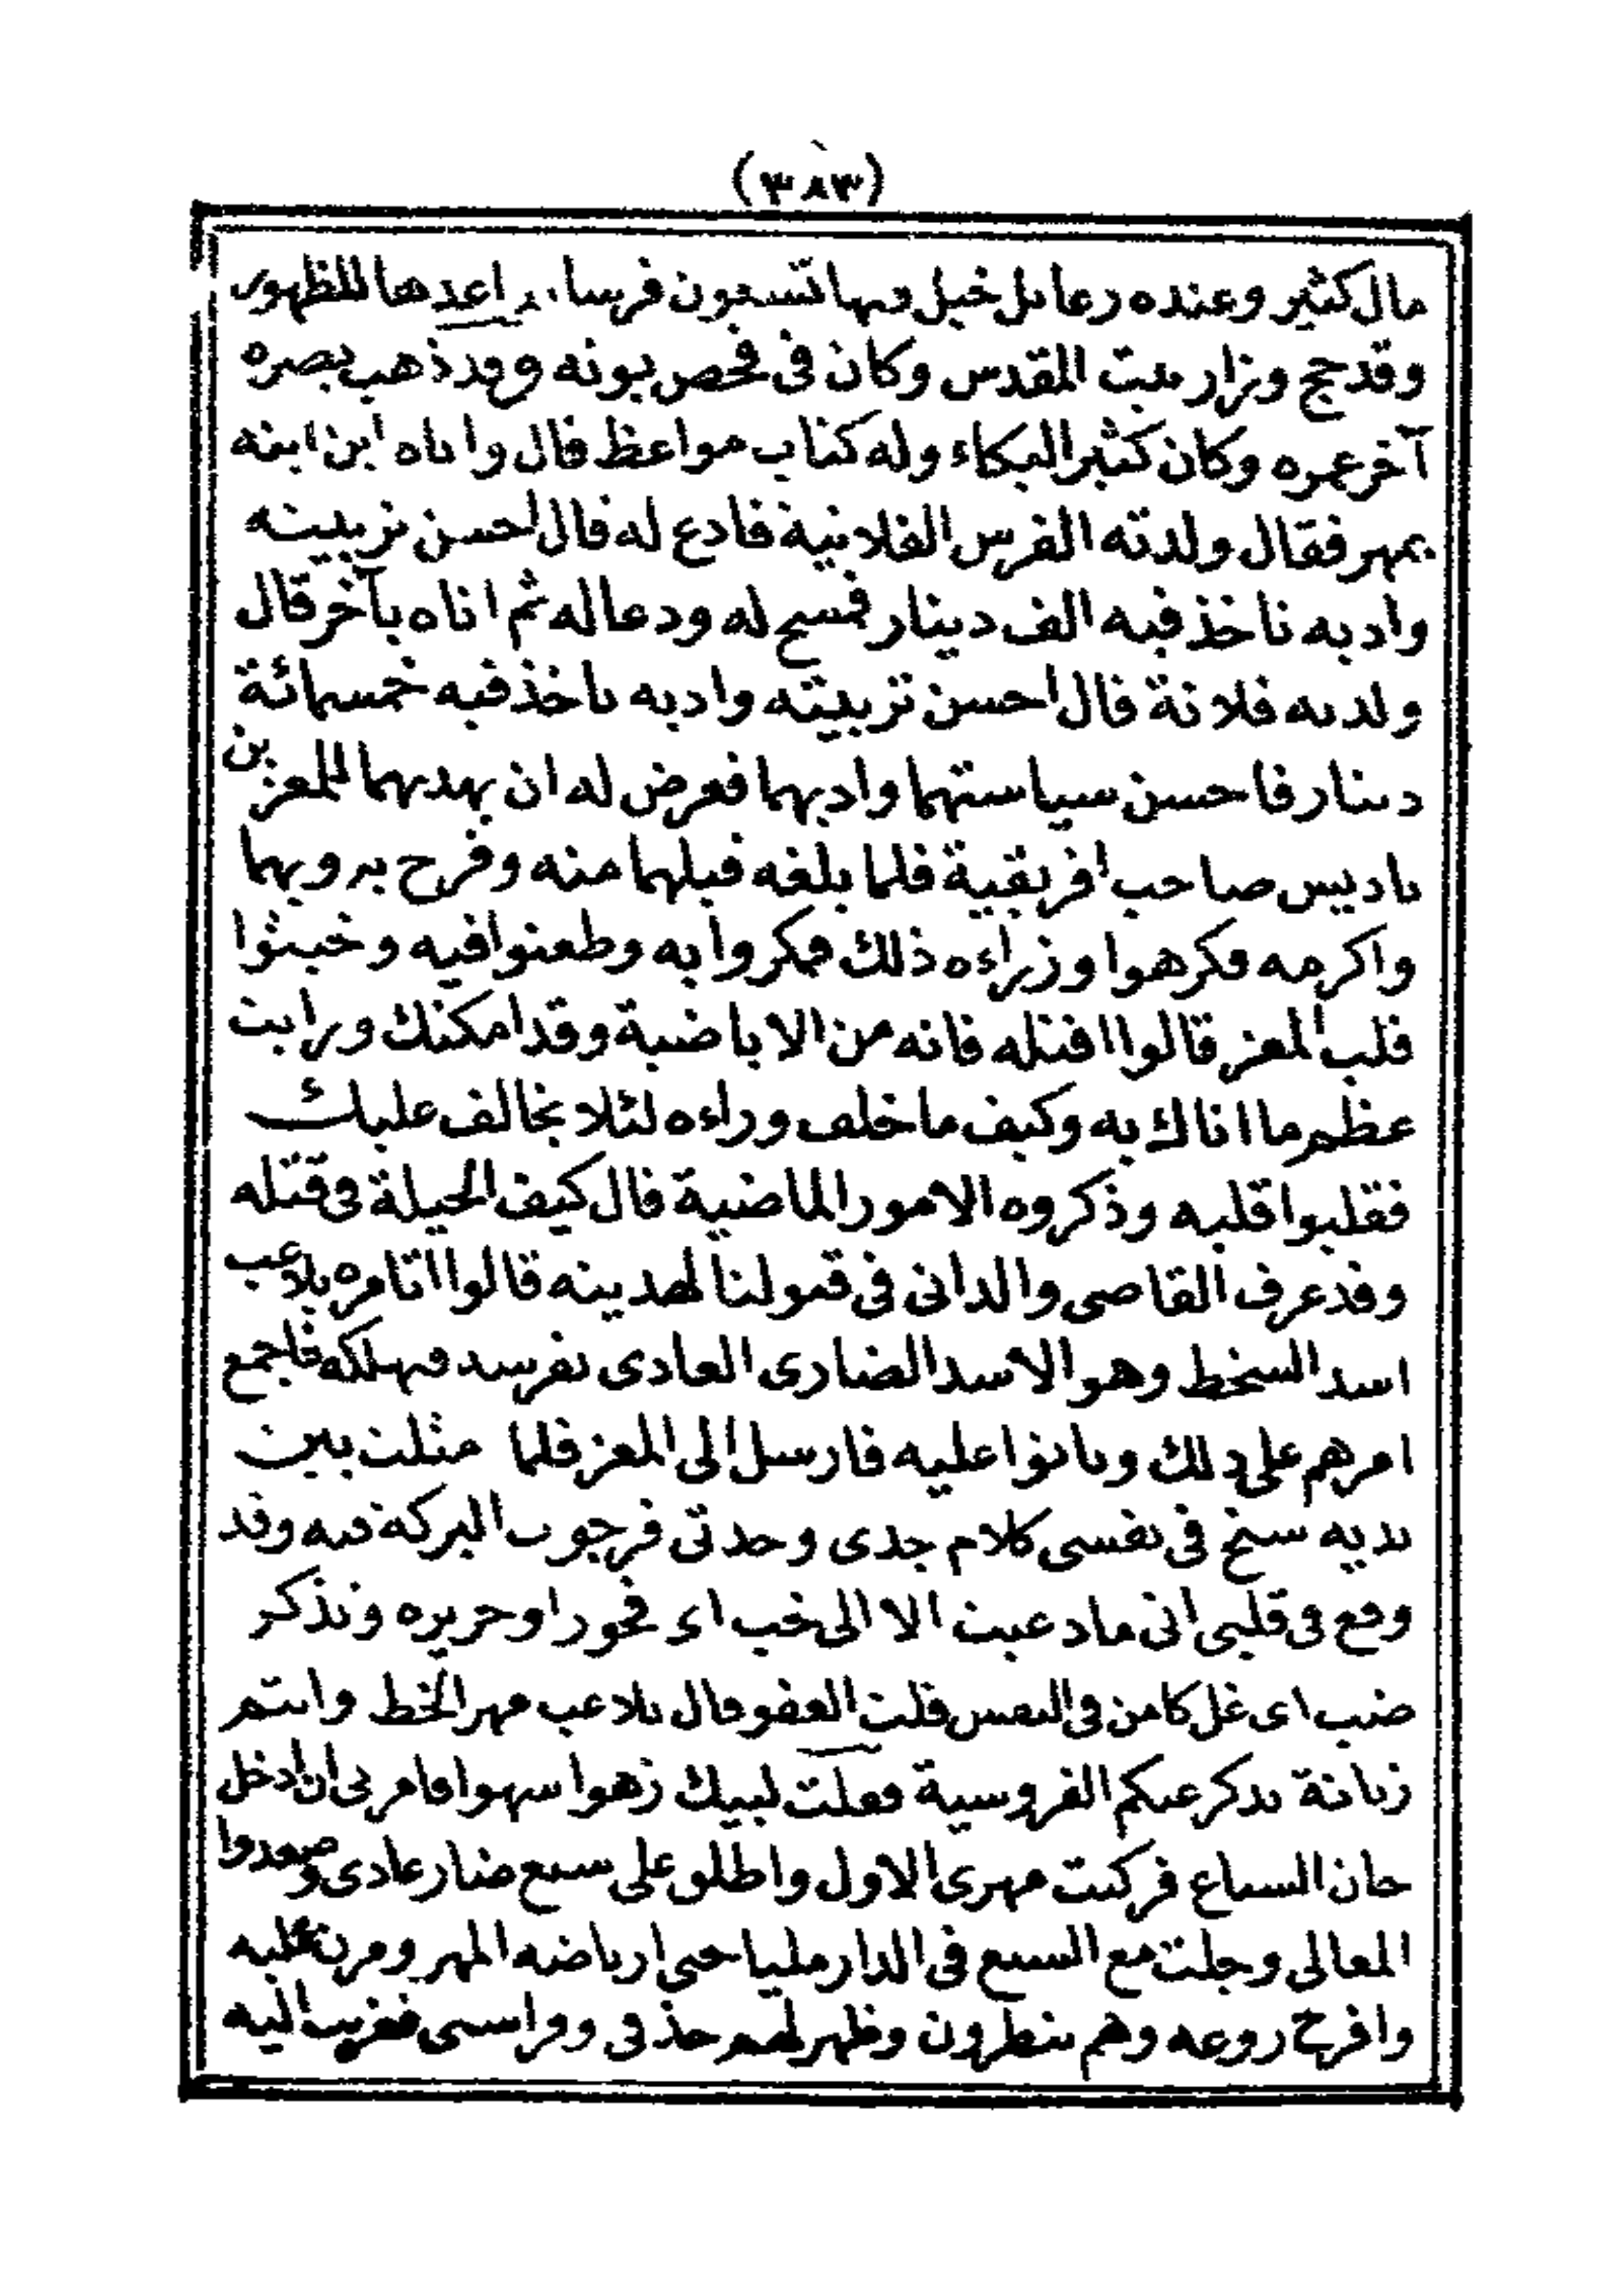 (٣٨٣)
مال كثير وعنده رعائل خيل فيها تسعون فرسا اعدها للظهور
وقد حج وزار بيت المقدس وكان فى فحص بونه وقد ذهب بصره
آخر عمره وكان كثير البكاء وله كتاب مواعظ قال واتاه ابن ابنه
بمهر فقال ولدته الفرس الفلانية فادع له قال احسن تربيته
وادبه تاخذ فيه الف دينار فمسح له ودعا له ثم اتاه بآخر قال
ولدته فلانة قال احسن تربيته وادبه تاخذ فيه خمسمائة
دينار فاحسن سياستهما وادبهما فعرض له ان يهديهما للمعز بن
باديس صاحب افريقية فلما بلغه قبلهما منه وفرح بهما
واكرمه فكرهوا وزراءه ذلك فمكروا به وطعنوا فيه وخبثوا
قلب المعز قالوا اقتله فانه من الاباضية وقد امكنك ورايت
عظم ما اتاك به وكيف ما خلف وراءه لئلا يخالف عليك
فقلبوا قلبه وذكروه الامور الماضية قال كيف الحيلة فى قتله
وقد عرف القاصى والدانى فى قبولنا لهديته قالوا اتامره يلاعب
اسد السخط وهو الاسد الضارى العادى يفرسه فيهلكه فاجمع
امرهم على ذلك وباتوا عليه فارسل الى المعز فلما مثلت بين
يديه سنح فى نفسى كلام جدى وحدتى فرجوت البركة فيه وقد
وقع فى قلبى انى ما دعيت الا الى خب اى فجور او جريره وتذكر
ضب اى غل كامن فى النفس قلت العفو قال تلاعب مهر الخط وانتم
زناتة تذكر عنكم الفروسية فقلت لبيك زهوا سهوا فامر بى ان ادخل
حان السباع فركبت مهرى الاول واطلو على سبع ضار عادى وصعدوا
المعالى وجلت مع السبع فى الدار مليا حتى ارياضه المهر ومرن عليه
وافرخ روعه وهم ينظرون وظهر لهم حذقى وفراستى فقرب اليه